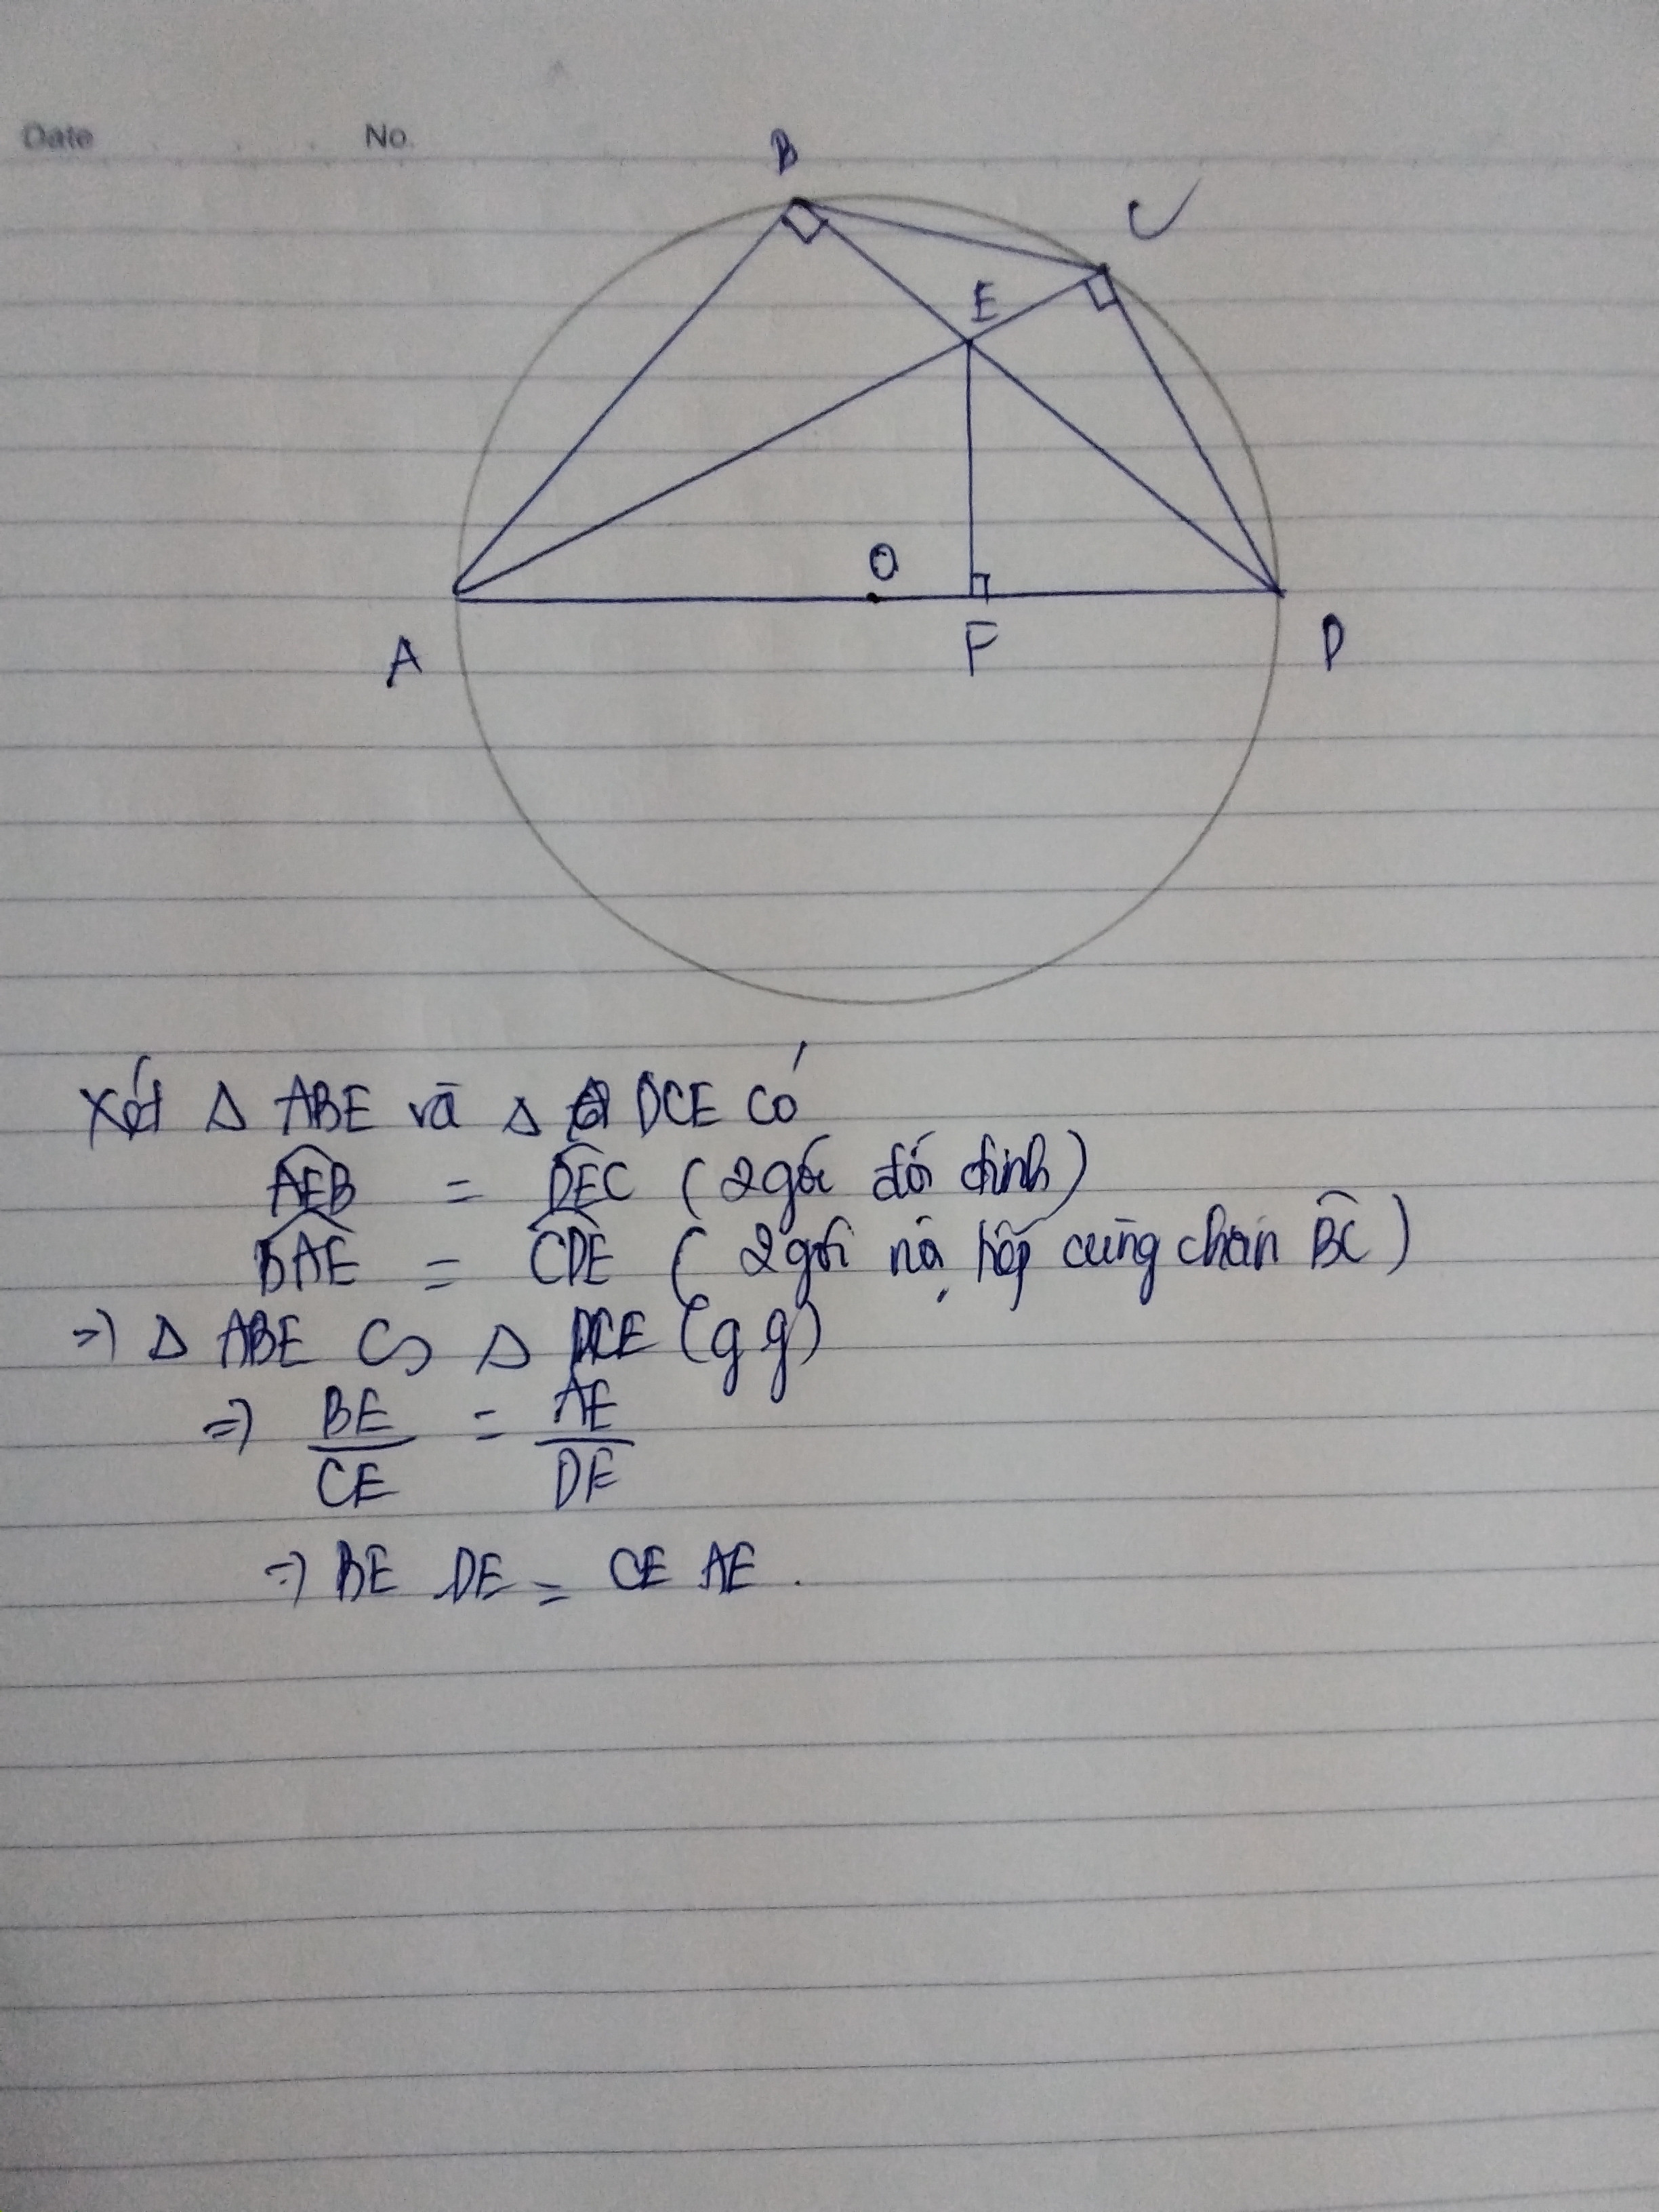 Date No.
B
C
E
O
A F D
Xét Δ ABE và Δ DCE có
AEB = DEC (2 góc đối đỉnh)
BAE = CDE (2 góc nội tiếp cùng chắn BC)
=> Δ ABE ∽ Δ DCE (g g)
=> BE/CE = AE/DE
=> BE DE = CE AE.